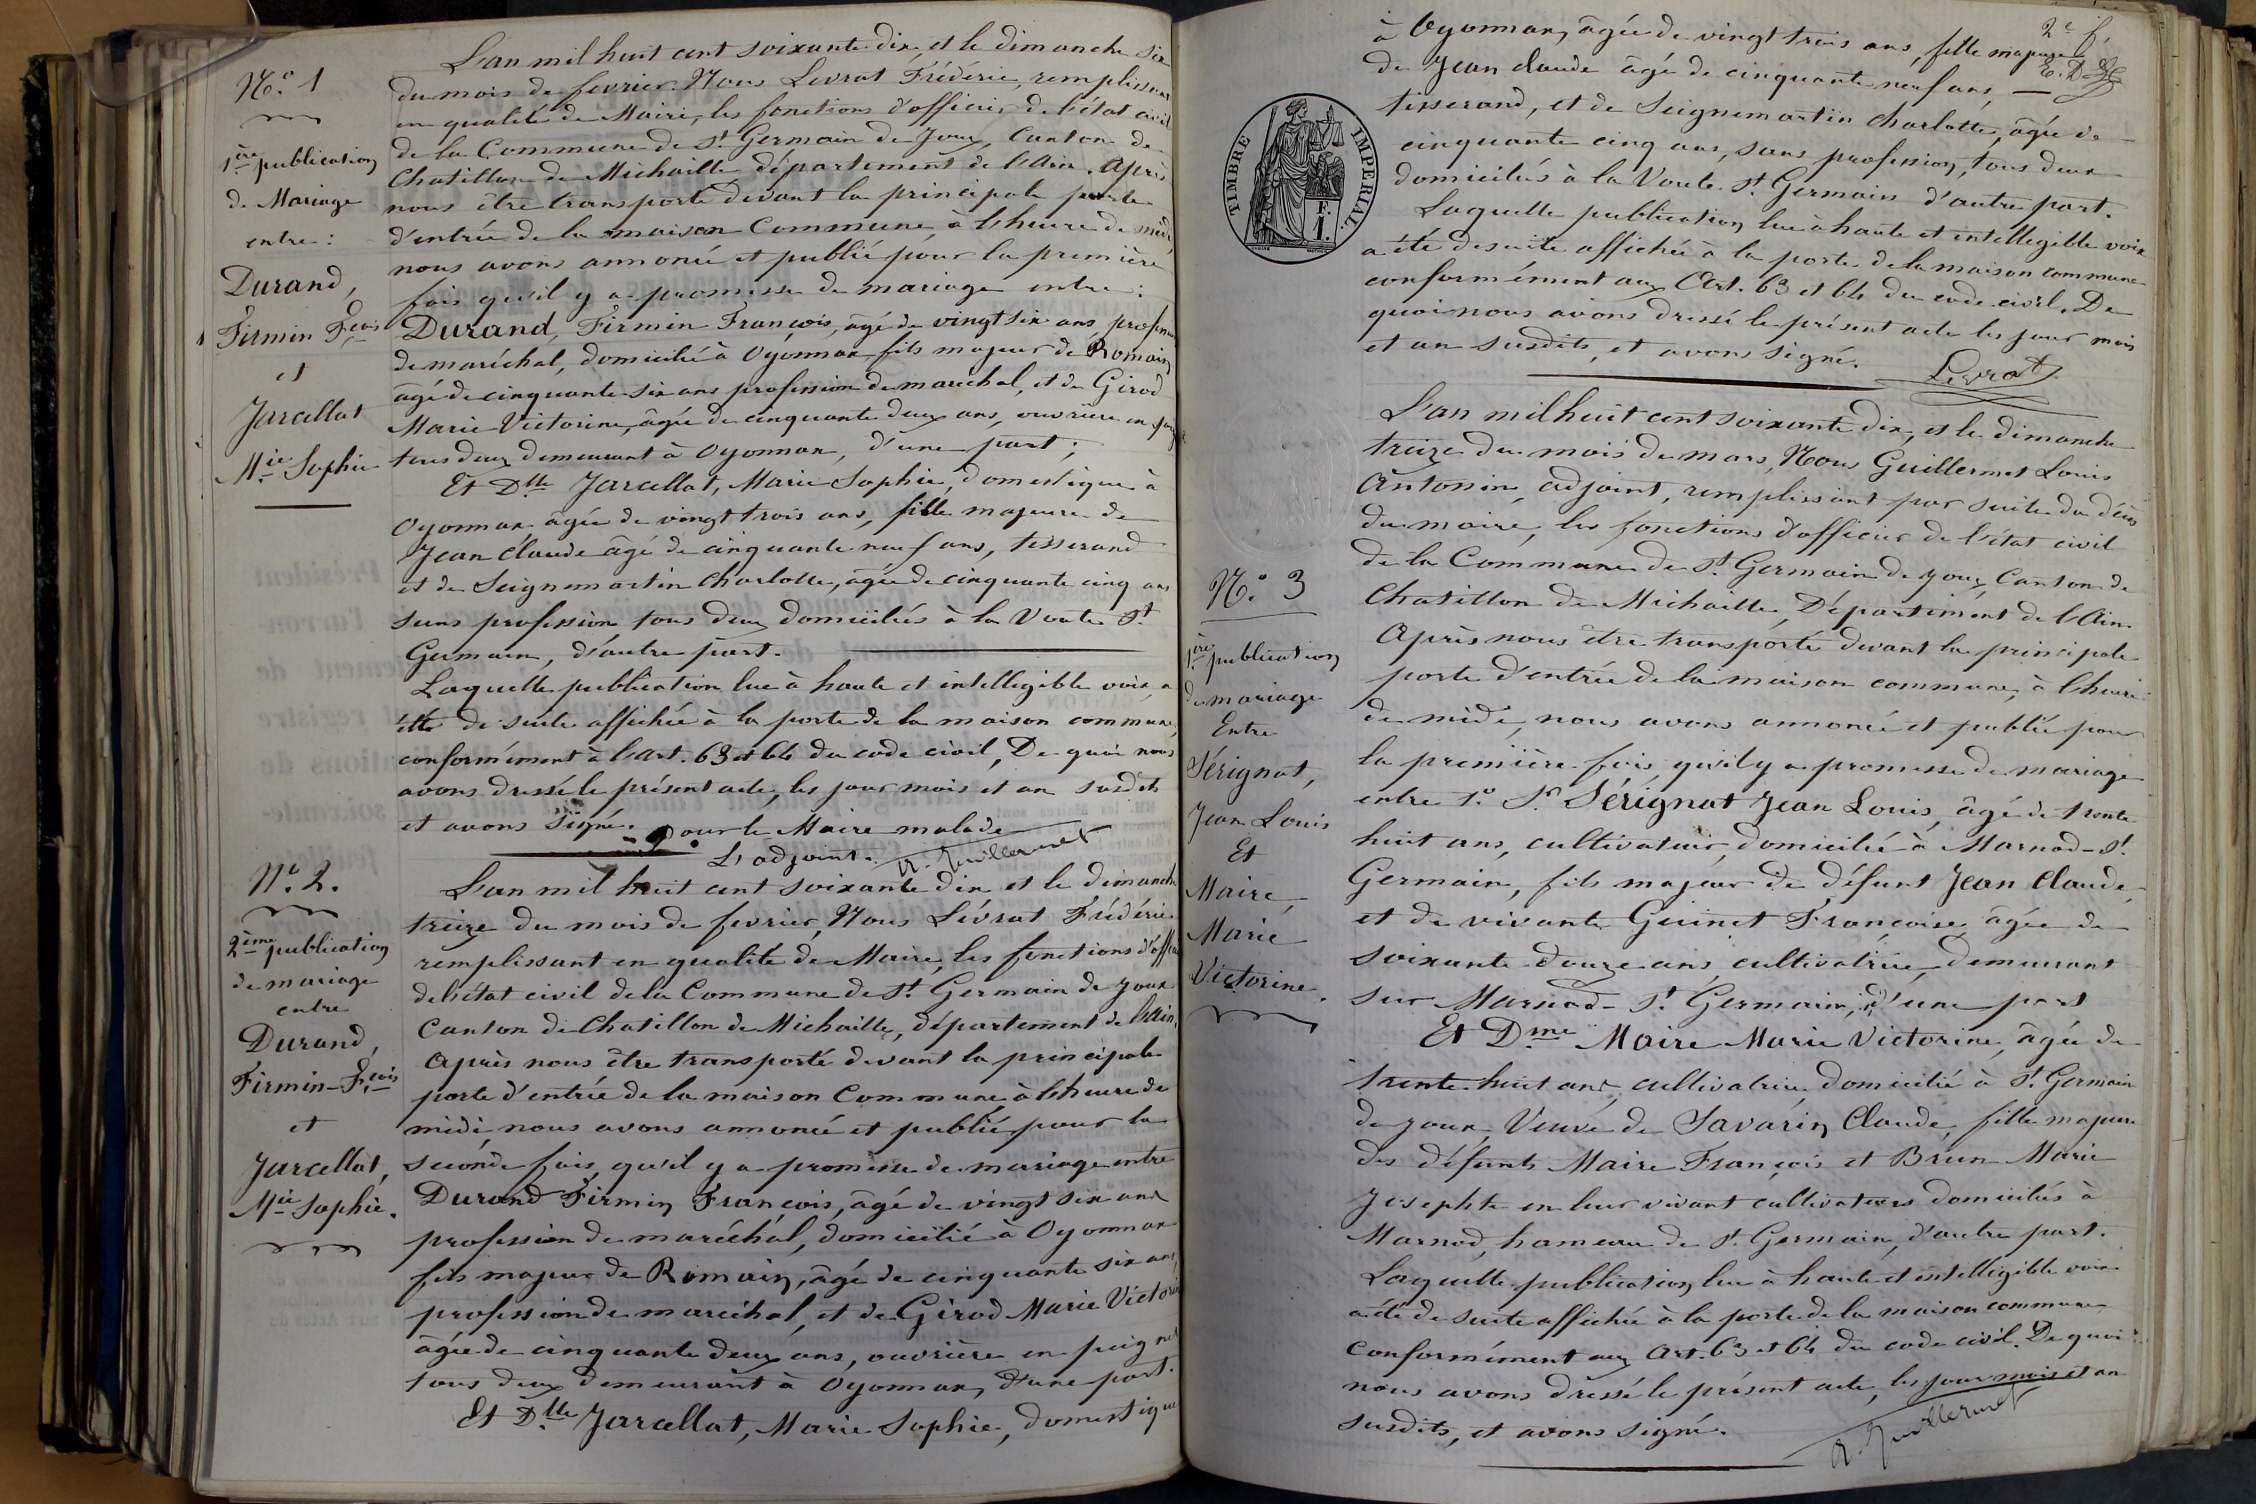 N.° 1
1ère publication
de Mariage
entre :
Durand,
Firmin F.çois
et
Jarcellat
M.ie Sophie
L'an mil huit cent soixante dix, et le dimanche six
du mois de fevrier. Nous Levrat Fréderic, remplissant
en qualité de Maire, les fonctions d'officier de l'état civil
de la Commune de St Germain de Joux, Canton de
Chatillon de Michaille département de l'Ain. Après
nous être transporté devant la principale porte
d'entrée de la maison Commune, à l'heure de midi,
nous avons annoncé et publié pour la première
fois qu'il y a promesse de mariage entre :
Durand, Firmin François, âgé de vingt six ans profession
de maréchal, domicilié à Oyonnax fils majeur de Romain
âgé de cinquante six ans profession de marechal, et de Girod
Marie Victorine, âgée de cinquante deux ans, ouvrière en
tous deux demeurant à Oyonnax, d'une part ;
Et Dlle Jarcellat, Marie Sophie, domestique à
Oyonnax âgée de vingt trois ans, fille majeure de
Jean Claude âgé de cinquante neuf ans, tisserand
et de Seignemartin Charlotte, âgée de cinquante cinq ans
sans profession tous deux domiciliés à la Voute St
Germain, d'autre part.
Laquelle publication lue à haute et intelligible voix, a
été de suite affichée à la porte de la maison commune,
conformément à l'art. 63 et 64 du code civil, De quoi nous
avons dressé le présent acte, les jour mois et an susdits
et avons signé. Pour le Maire malade
L'adjoint. A. Guillermet
N.° 2.
2ème publication
de mariage
entre
Durand,
Firmin-F.çois
et
Jarcellat,
M.ie Sophie.
L'an mil huit cent soixante dix et le dimanche
treize du mois de fevrier, Nous Lévrat Frédéric
remplissant en qualité de Maire, les fonctions d'officier
de l'état civil de la Commune de St. Germain de Joux
Canton de Chatillon de Michaille, département de l'Ain.
Après nous être transporté devant la principale
porte d'entrée de la maison Commune, à l'heure de
midi, nous avons annoncé et publié pour la
seconde fois, qu'il y a promesse de mariage entre
Durand Firmin François, âgé de vingt six ans
profession de maréchal, domicilié à Oyonnax
fils majeur de Romain, âgé de cinquante six ans,
profession de maréchal, et de Girod Marie Victorine
âgée de cinquante deux ans, ouvrière en
tous deux demeurant à Oyonnax, d'une part.
Et Dlle Jarcellat, Marie Sophie, domestique
2e f.
à Oyonnax, âgée de vingt trois ans, fille majeure
de Jean Claude âgé de cinquante neuf ans,
tisserand, et de Seignemartin Charlotte, âgée de
cinquante cinq ans, sans profession, tous deux
domiciliés à la Voute St. Germain d'autre part.
Laquelle publication lue à haute et intelligible voix
a été de suite affichée à la porte de la maison commune
conformément aux Art. 63 et 64 du code civil. De
quoi nous avons dressé le présent acte les jour mois
et an susdits, et avons signé.
Levrat
TIMBRE IMPERIAL.
F.
1.
N.° 3
1ère publication
de mariage
Entre
Sérignat,
Jean Louis
Et
Maire,
Marie
Victorine.
L'an mil huit cent soixante dix, et le dimanche
treize du mois de mars, Nous Guillermet Louis
Antonin, adjoint, remplissant par suite du décès
du maire, les fonctions d'officier de l'état civil
de la Commune de St. Germain de Joux, Canton de
Chatillon de Michaille, Département de l'Ain.
Après nous être transporté devant la principale
porte d'entrée de la maison commune, à l'heure
de midi, nous avons annoncé et publié pour
la première fois, qu'il y a promesse de mariage
entre 1.° Sr Sérignat Jean Louis, âgé de trente
huit ans, cultivateur, domicilié à Marnod-St.
Germain, fils majeur de défunt Jean Claude,
et de vivante Guinet Françoise, âgée de
soixante douze ans, cultivatrice, demeurant
sur Marnod-St. Germain, d'une part
Et Dme Maire Marie Victorine, âgée de
trente-huit ans, cultivatrice, domicilié à St. Germain
de Joux, Veuve de Savarin Claude, fille majeure
des défunts Maire François et Brun Marie
Josephte en leur vivant cultivateurs domiciliés à
Marnod, hameau de St. Germain, d'autre part.
Laquelle publication lue à haute et intelligible voix
a été de suite affichée à la porte de la maison commune
conformément aux Art. 63 et 64 du code civil. De quoi
nous avons dressé le présent acte, les jour mois et an
susdits, et avons signé.
A. Guillermet